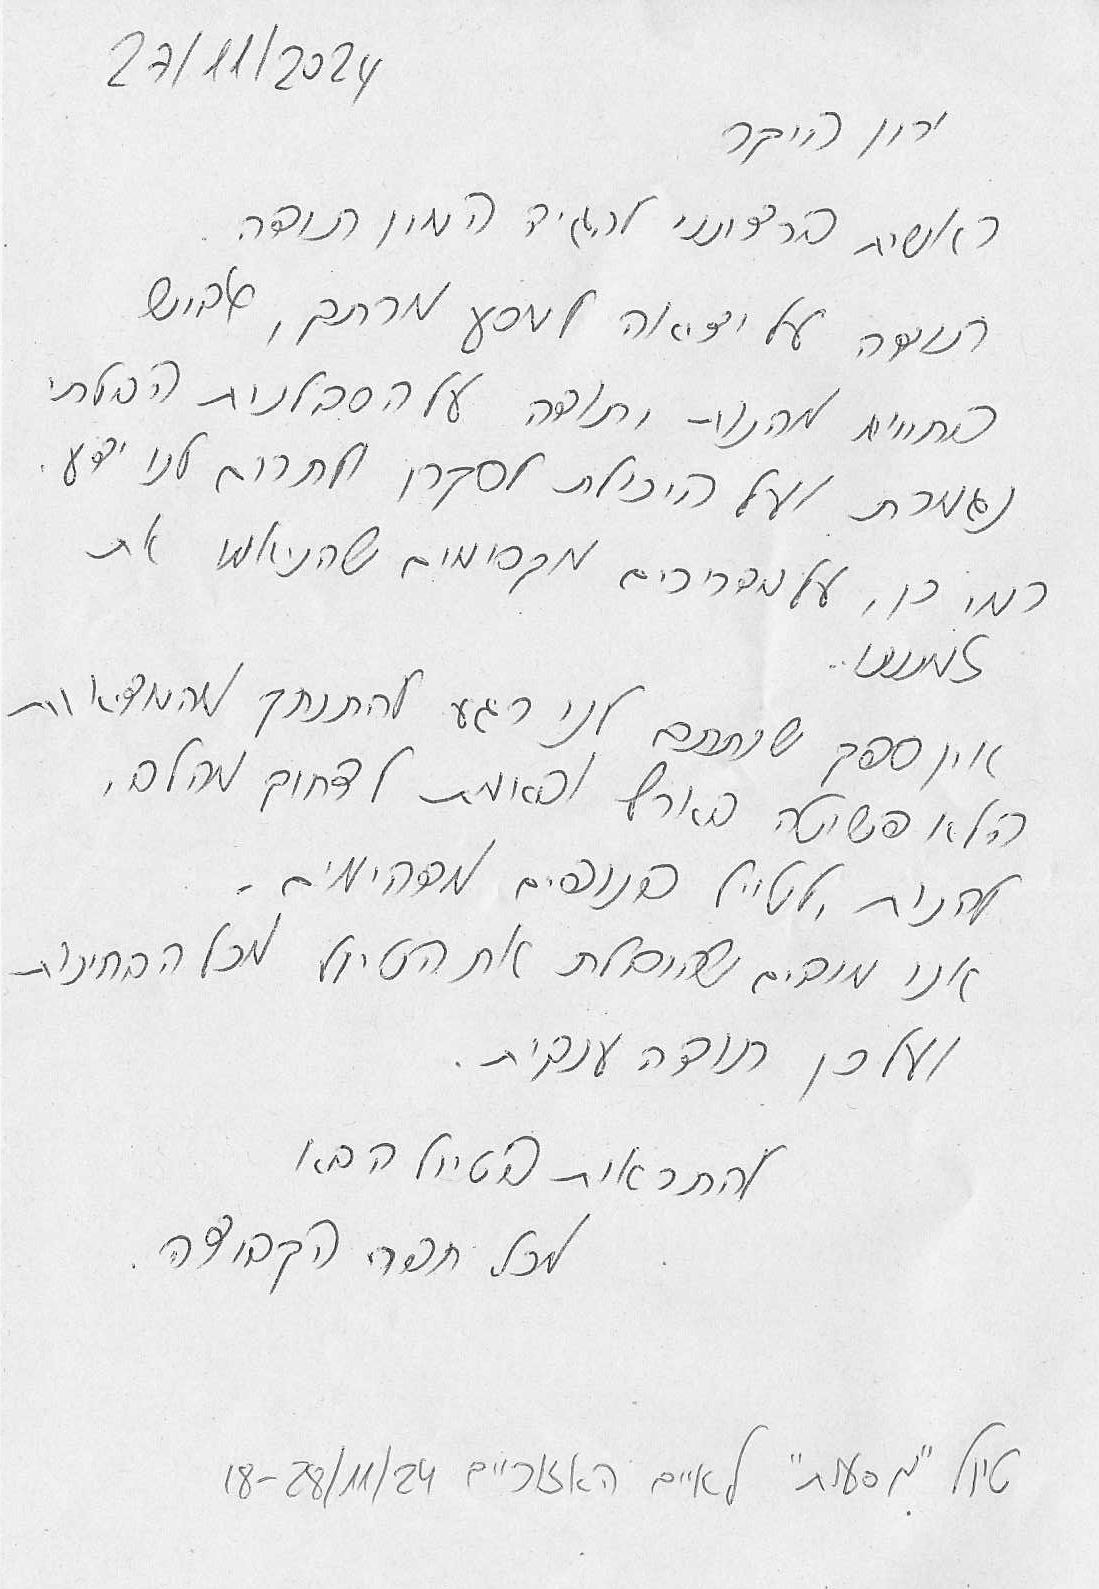 27/11/2024
ירון היקר
ראשית ברצוננו להגיד המון תודה.
תודה על יציאה למסע מרתק, גביש
חוויות מהנות ותודה על הסבלנות הבלתי
נגמרת ועל היכולת לסקרן ולתרום לנו ידע.
כמו כן, על מדריכים מקסימים שהנאימו את
זמננו..
אין ספק שנתתם לנו רגע להתנתק מהמציאות
הלא פשוטה בארץ ובאמת לצחוק מהלב,
להנות ,לטייל בנופים מדהימים.
אנו מודים שהובלת את הטיול מכל הבחינות
ועל כן תודה ענקית.
להתראות בטיול הבא
מכל חברי הקבוצה.
טיול "מסעות" לאיים האזוריים 18-28/11/24